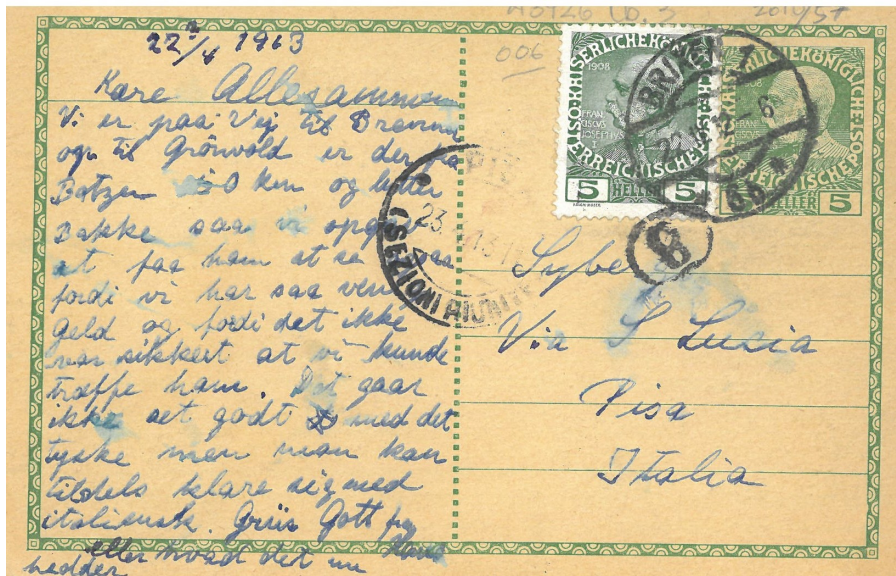 006
22 2/4 1913
Kære Allesammen
Vi er paa Vej til Brenner
og til Grönwold er der fra
Botzen 30 km og lutter
Bakke saa vi opgav
at faa ham at se
fordi vi har saa
Geld og fordi det ikke
var sikkert at vi kunde
træffe ham. Det gaar
ikke set godt med det
tyske men man kan
tildels klare sig med
italiensk. Grüs Gott fra
Hans
eller hvad det nu
hedder
KAISERLICHE KÖNIGLICHE
1908
FRAN
CISCVS
JOSEPHVS
I
ÖSTERREICHISCHE POST
5 HELLER 5
HELLER 5
BRIXEN 1
PISA
23. 13
(SEZIONI RIUNITE
8
Syberg
Via S Lucia
Pisa
Italia